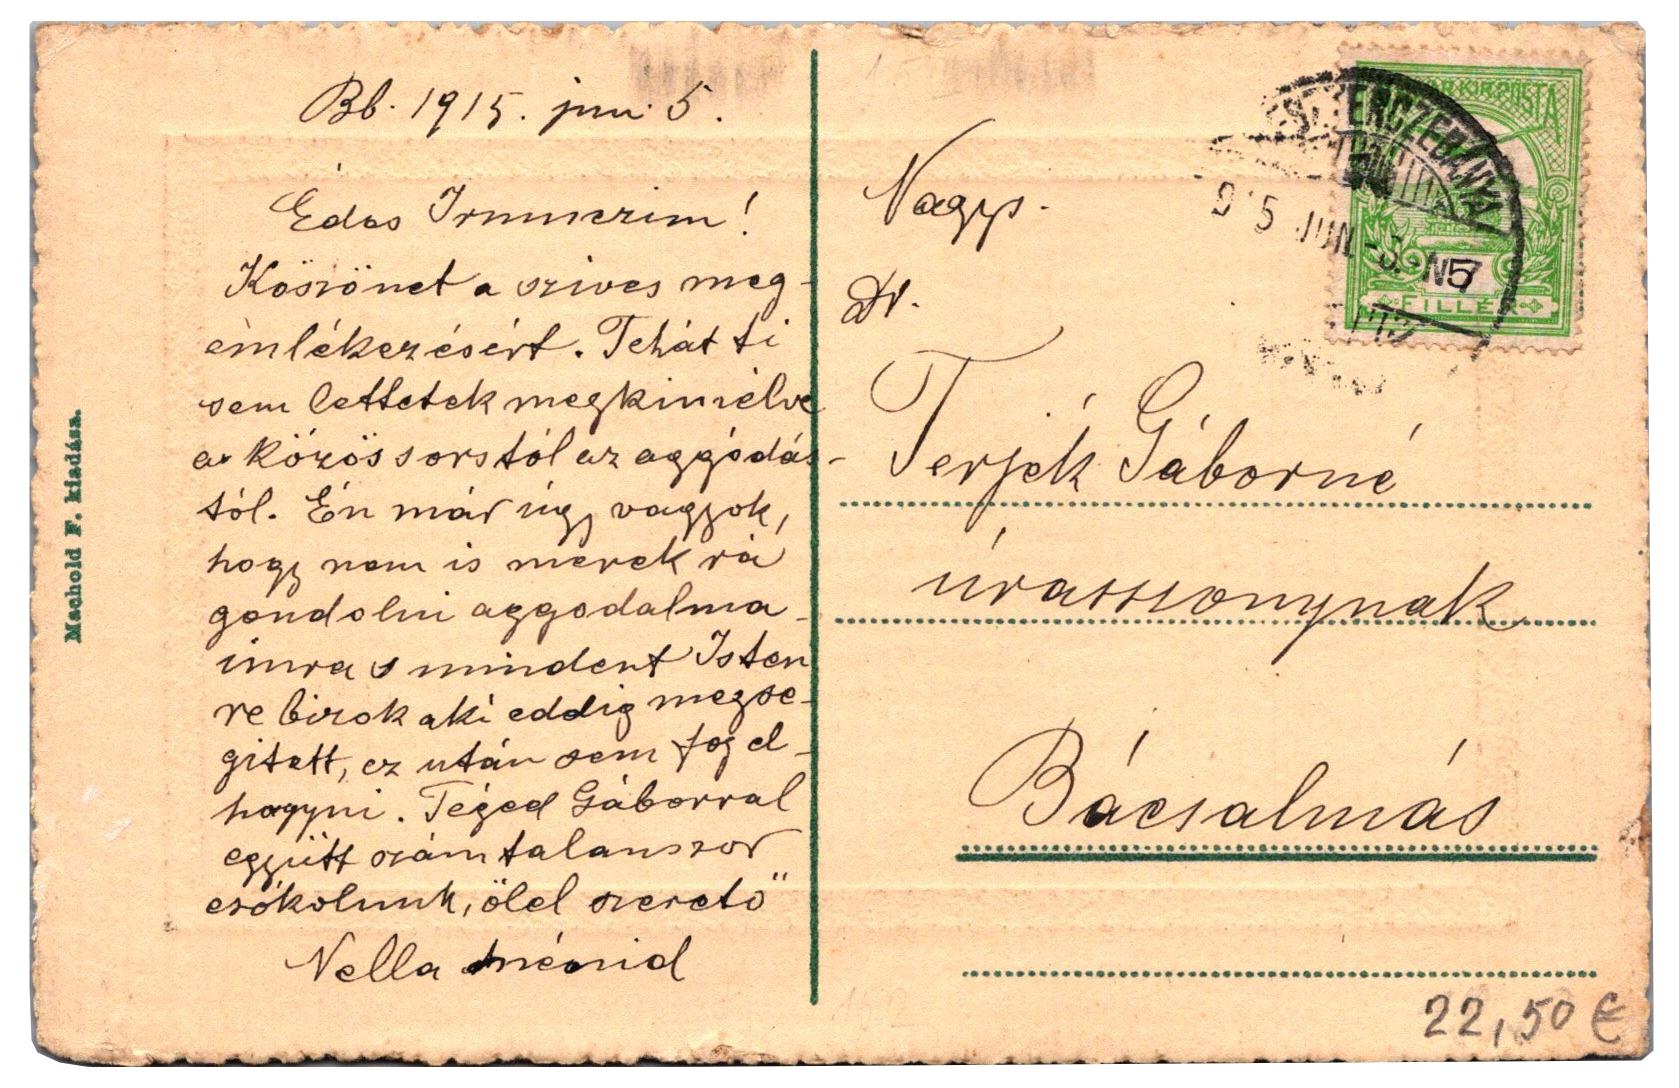 Bb. 1915. jun. 5.
Édes Irmuczim!
Köszönet a szives meg-
emlékezésért. Tehát ti
sem lettetek megkimélve
a közös sorstól az aggódás-
tól. Én már úgy vagyok,
hogy nem is merek rá
gondolni aggodalma-
imra s mindent Isten
re bizok aki eddig megse-
gitett, ez után sem fog el-
hagyni. Téged Gáborral
együtt számtalanszor
csókolunk, ölel szerető
Nella nénid
Machold F. kiadása.
Nagys.
Dr.
Terjék Gáborné
úrasszonynak
Bácsalmás
MAGYAR KIR. POSTA
FILLÉR
BESZTERCZEBÁNYA
915 JUN.
N5
22,50 €